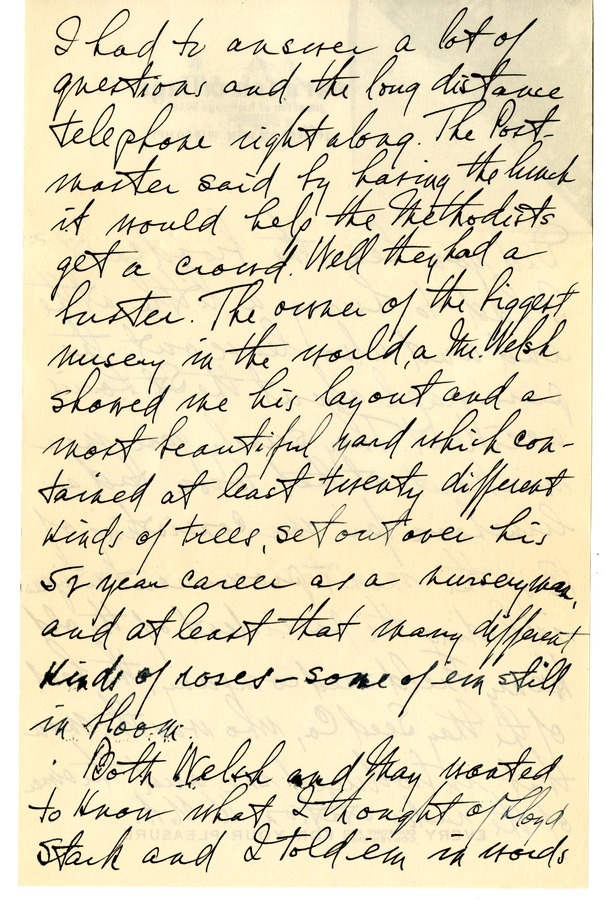 I had to answer a lot of
questions and the long distance
telephone right along. The Post-
master said by having the lunch
it would help the Methodists
get a crowd. Well they had a
buster. The owner of the biggest
nusery in the world, a Mr. Welsh
showed me his layout and a
most beautiful yard which con-
tained at least twenty different
kinds of trees, set out over his
52 year career as a nurseryman,
and at least that many different
kinds of roses - some of em still
in bloom.
Both Welsh and May wanted
to know what I thought of Lloyd
Stark and I told em in words